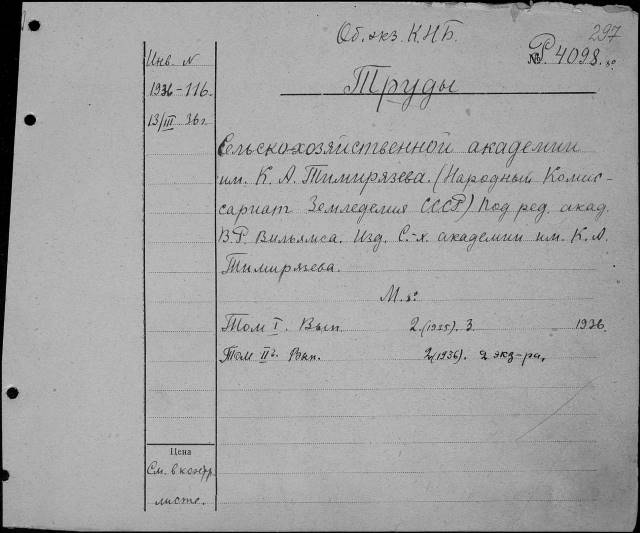 297
Об. экз. К.Н.Б.
№ Р. 4098. 8°
Труды
Инв. N
1936-116.
13/III 36 г.
Сельскохозяйственной академии
им. К. А. Тимирязева. (Народный Комис-
сариат Земледелия СССР) Под ред. акад.
В.Р. Вильямса. Изд. С.-х. академии им. К.А.
Тимирязева.
М. 8°
Том I. Вып. 2.(1935). 3. 1936.
Том II. Вып. 2(1936). 2 экз-ра.
Цена
См. в контр.
листе.